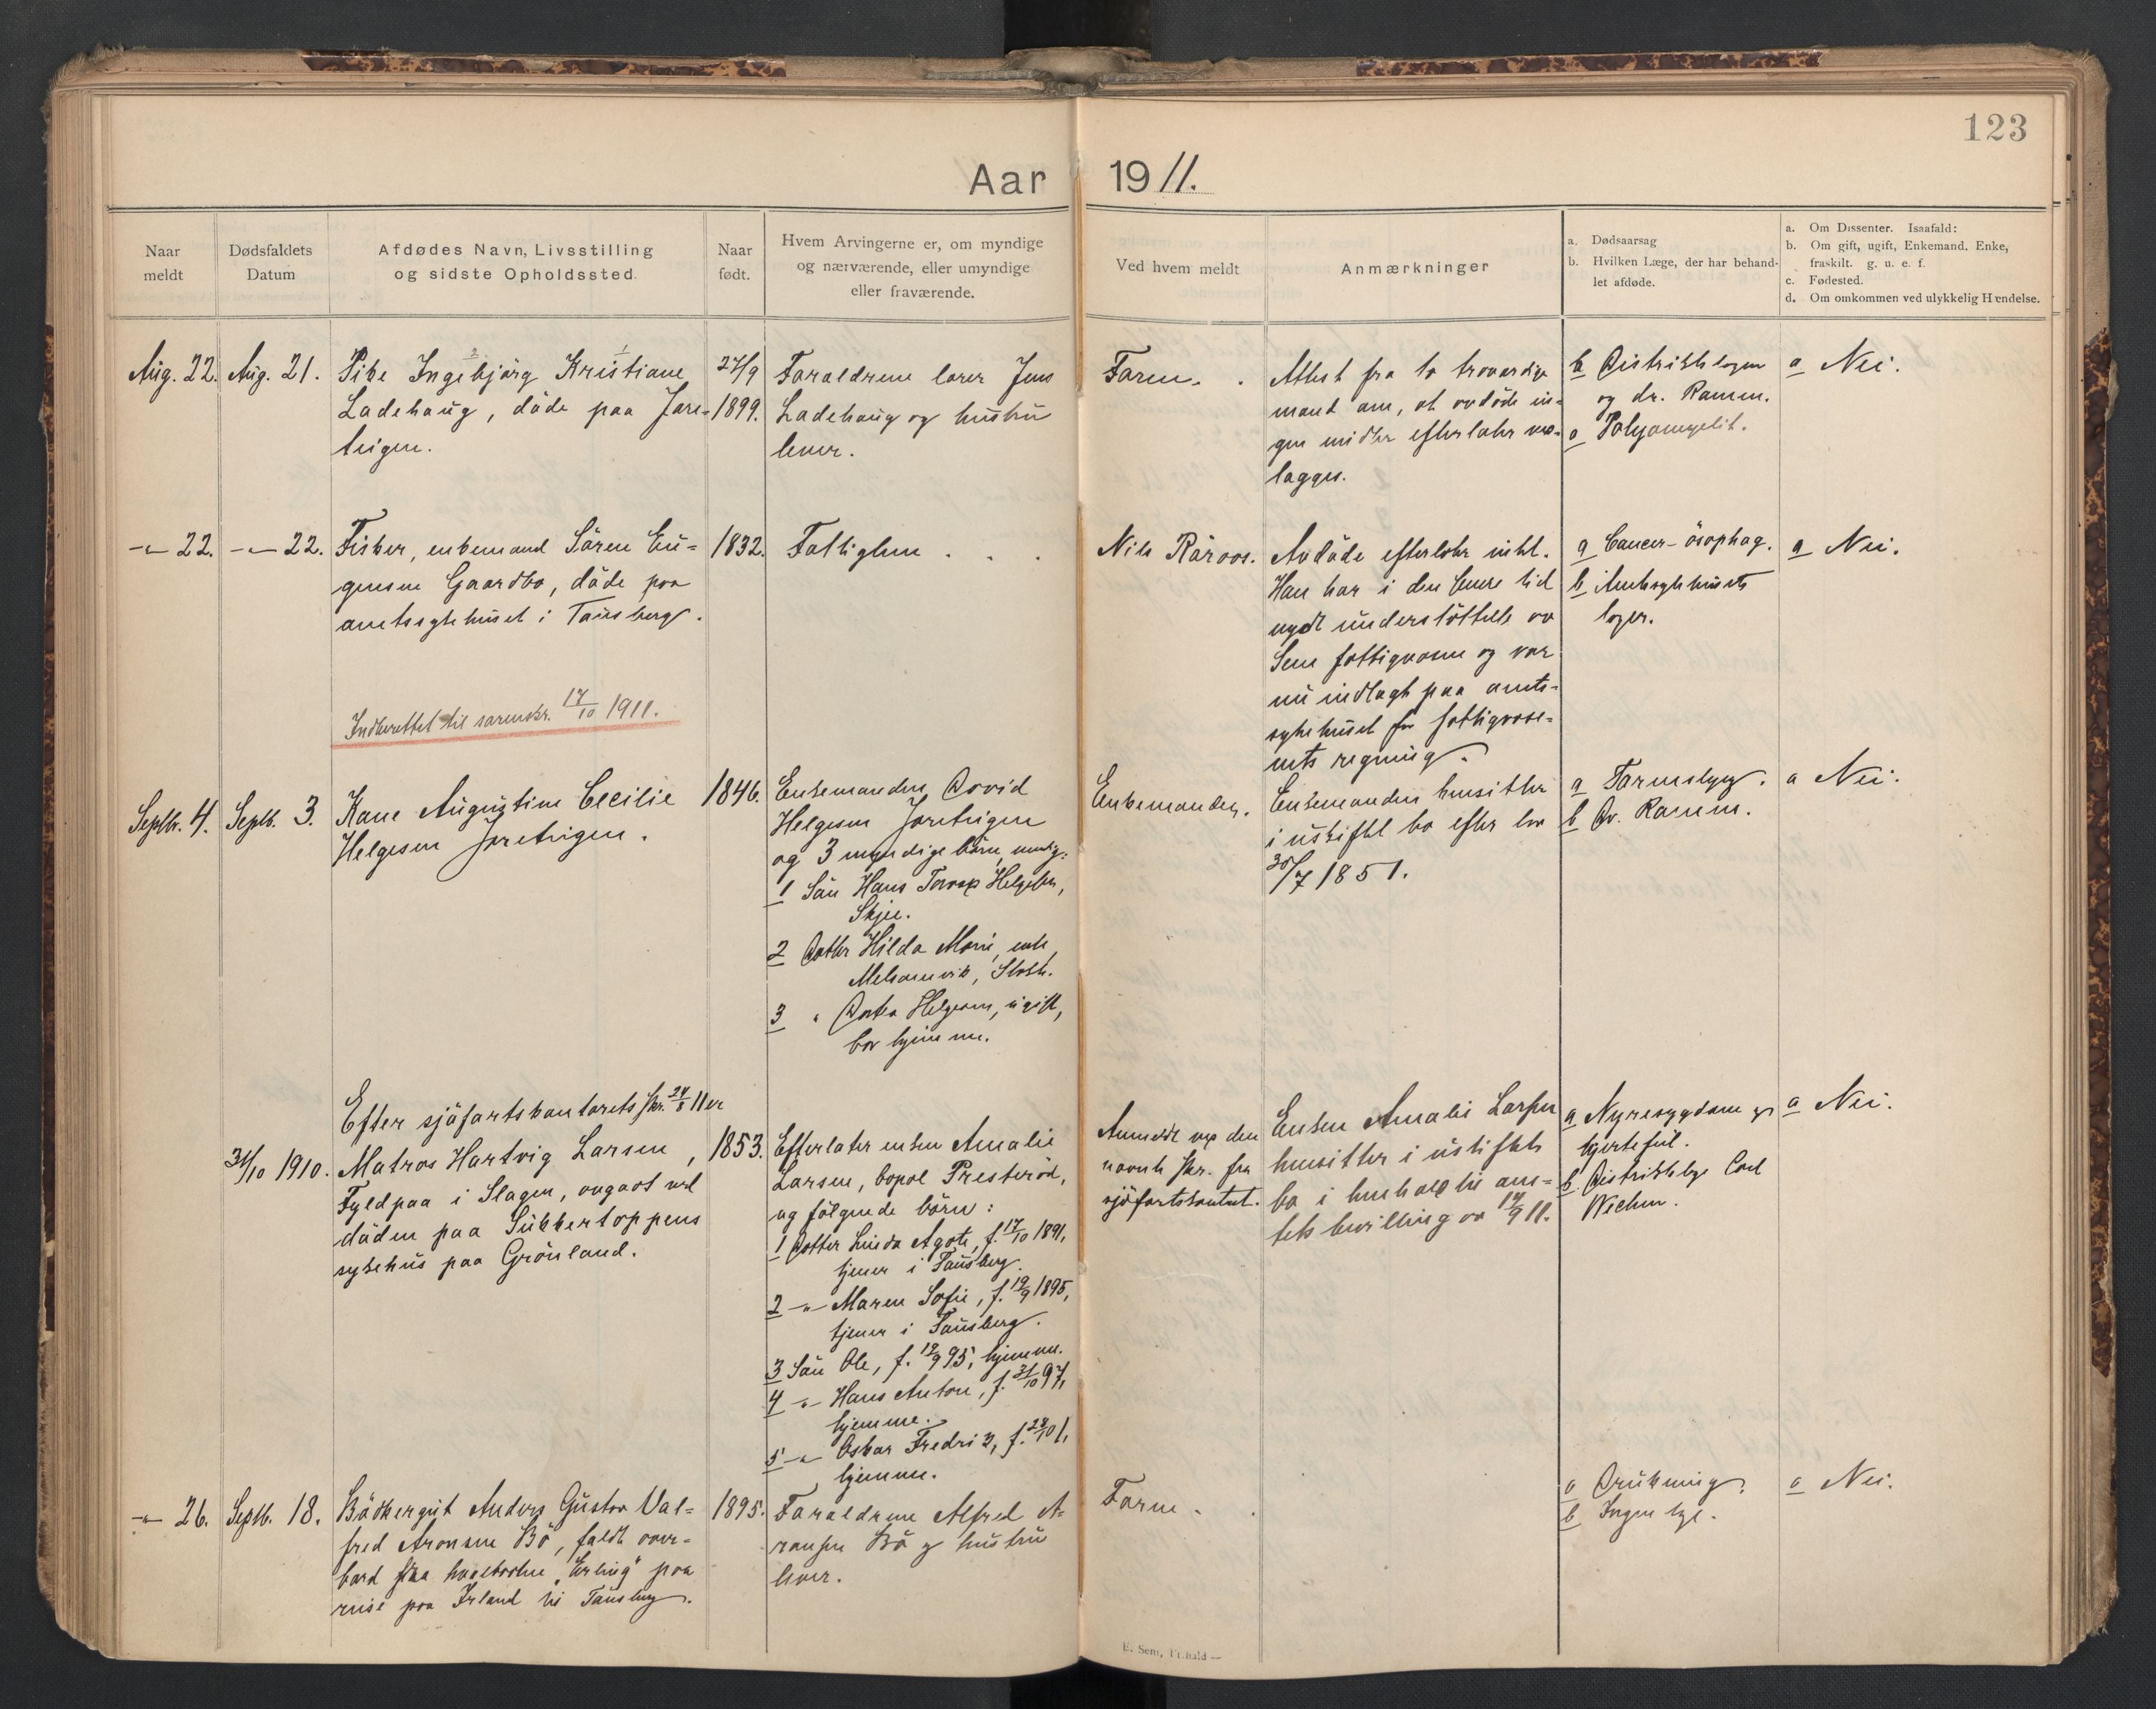 123
Aar 1911.
Naar
meldt
Dødsfaldets
Datum
Afdødes Navn, Livsstilling
og sidste Opholdssted.
Naar
født.
Hvem Arvingerne er, om myndige
og nærværende, eller umyndige
eller fraværende.
Ved hvem meldt
Anmærkninger
a. Dødsaarsag
b. Hvilken Læge, der har behand-
let afdøde.
a. Om Dissenter. Isaafald:
b. Om gift, ugift, Enkemand, Enke,
fraskilt. g. u. e. f.
c. Fødested.
d. Om omkommen ved ulykkelig Hændelse.
Aug. 22.
Aug. 21.
Pike Ingebjörg Kristiane
Ladehaug, döde paa Jare-
teigen.
27/9
1899.
Foraldrene lærer Jens
Ladehaug og hustru
lever.
Faren.
Attest fra to trovardige
mænd om, at avdöde in-
gen midler efterlater ved-
lægges.
b Distriktslægen
og dr. Ramm.
a Polyomyelit.
a Nei.
-"- 22.
-"- 22.
Fisker, enkemand Sören Eu-
gensen Gaardbo, döde paa
amtssykehuset i Tönsberg.
1832.
Fattiglem
Nils Röroos.
Avdöde efterlater intet.
Han har i den senere tid
nydt understöttelse av
Sem fattigvæsen og var
nu indlagt paa amts-
sykehuset for fattigvæse-
nets regning.
a Cancer-ösophag.
b Amtssykehusets
læger.
a Nei.
Indberettet til sorenskr. 17/10 1911.
Septb. 4.
Septb. 3.
Kone Augustine Cecilie
Helgesen Jareteigen.
1846.
Enkemanden David
Helgesen Jareteigen
og 3 myndige börn, nemlig:
1 Sön Hans Helgesen,
Skjee.
2 Datter Hilda Marie, enke,
Melsomvik, Stokke.
3 " Helgesen, ugift,
bor hjemme.
Enkemanden.
Enkemanden hensitter
i uskiftet bo efter lov
30/7 1851.
a Tarmslyng.
b Dr. Ramm.
a Nei.
Efter sjöfartskontorets skr. 24/8 11 er
31/10 1910.
Matros Hartvig Larsen,
Fyldpaa i Slagen, avgaat ved
döden paa Sukkertoppens
sykehus paa Grönland.
1853.
Efterlater enken Amalie
Larsen, bopæl Presteröd,
og fölgende börn:
1 Datter Linda Agote, f. 17/10 1891,
tjener i Tönsberg.
2 -"- Maren Sofie, f. 19/9 1895,
tjener i Tönsberg.
3 Sön Ole, f. 19/9 95, hjemme.
4 -"- Hans Anton, f. 31/10 97,
hjemme.
5 -"- Oskar Fredrik, f. 28/10 01,
hjemme.
Anmeldt ved den
nævnte skr. fra
sjöfartskontoret.
Enken Amalie Larsen
hensitter i uskiftet
bo i henhold til am-
tets bevilling av 14/9 11.
a Nyresygdom og
hjertefeil.
b Distriktslæge Carl
Wiehen.
a Nei.
-"- 26.
Septb. 18.
Bödkergut Anders Gustav Val-
fred Aronsen Bö, faldt over-
bord fra hvalbaaten „Erling" paa
reise fra Irland til Tönsberg.
1895.
Foraldrene Alfred A-
ronsen Bö og hustru
lever.
Faren.
a Drukning.
b Ingen læge.
a Nei.
E. Sem, Fr.hald